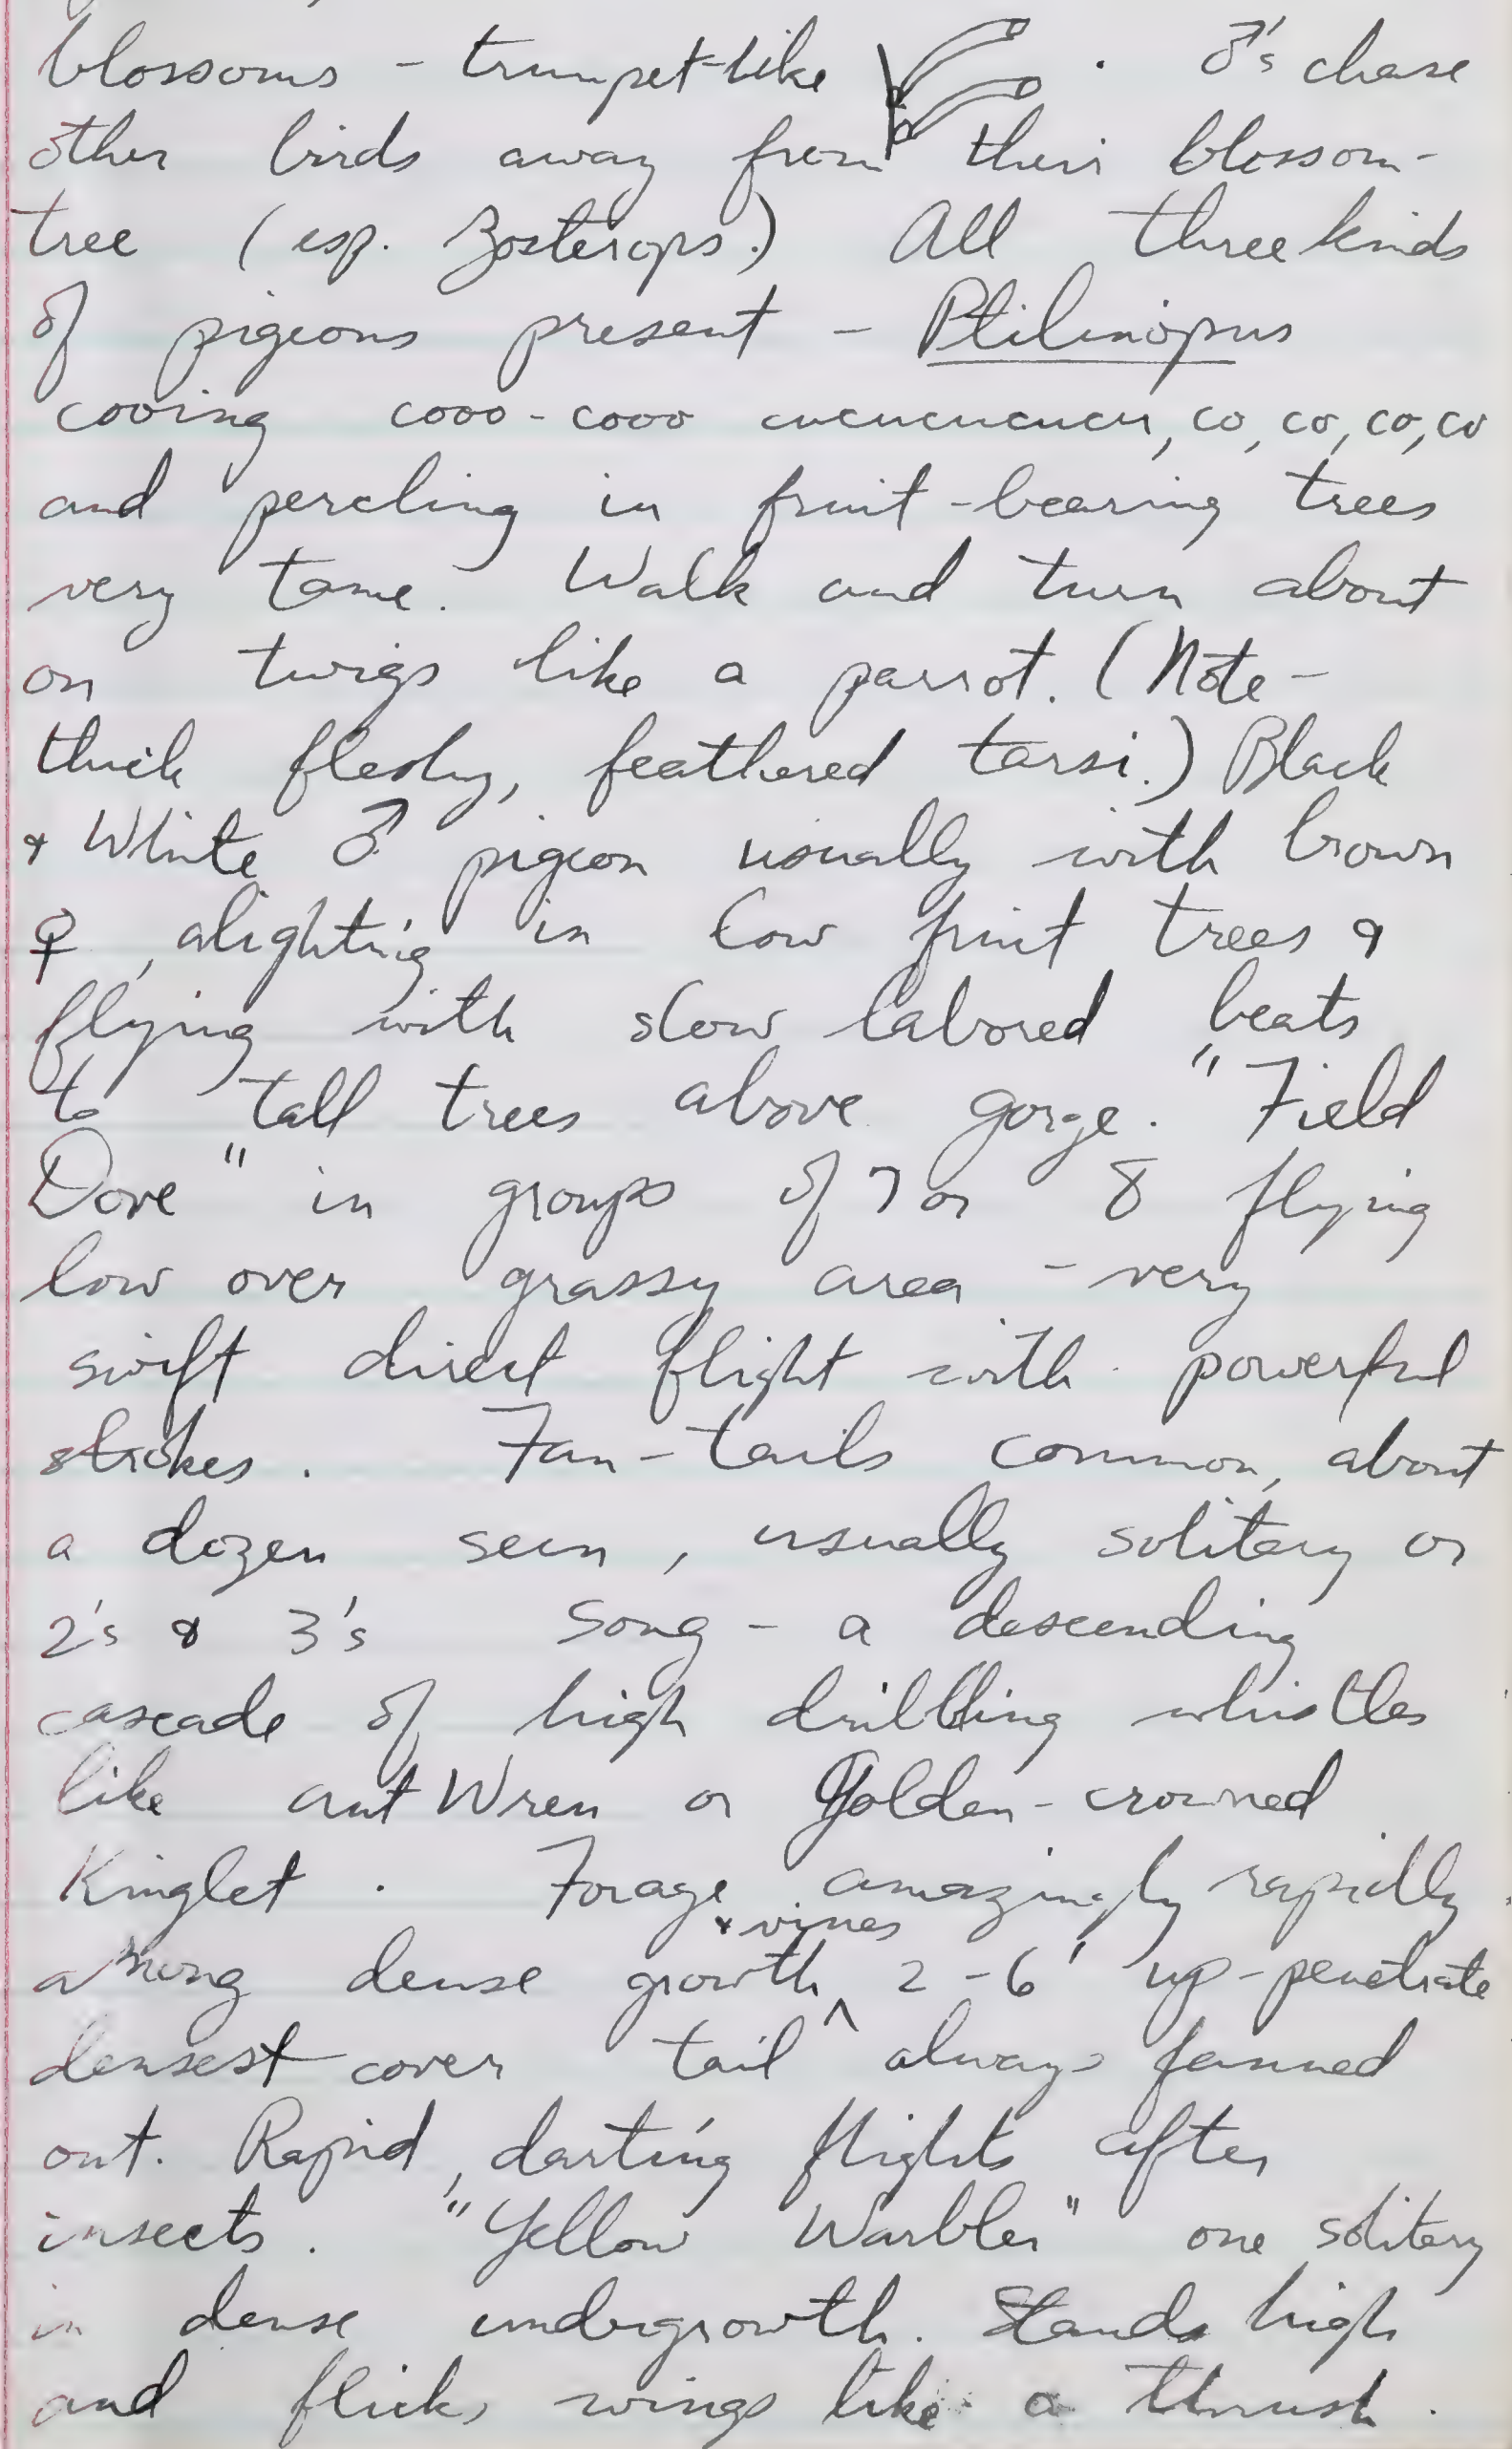 blossoms - trumpet-like . ♂'s chase
other birds away from their blossom-
tree (esp. Zosterops.) All three kinds
of pigeons present - Ptilinopus
cooing cooo-cooo cucucucucu, co, co, co, co
and perching in fruit-bearing trees
very tame. Walk and turn about
on twigs like a parrot. (Note-
thick fleshy, feathered tarsi.) Black
& White ♂ pigeon usually with brown
♀, alighting in low fruit trees &
flying with slow labored beats
to tall trees above gorge. "Field
Dove" in groups of 7 or 8 flying
low over grassy area - very
swift direct flight with powerful
strokes. Fan-tails common, about
a dozen seen, usually solitary or
2's & 3's Song - a descending
cascade of high whistles
like ant Wren or Golden-crowned
Kinglet. Forage amazingly rapidly
& vines
among dense growth ^ 2-6' up-penetrate
densest cover tail always fanned
out. Rapid, darting flights after
insects. "Yellow Warbler" one solitary
in dense undergrowth. Stands high
and flicks wings like a thrush.